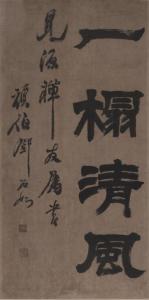 一榻清風
見禪友屬書
頑伯鄧石如